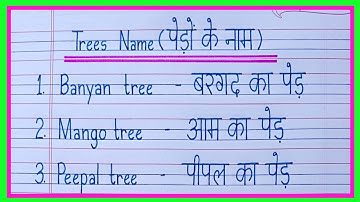 Trees Name (पेड़ों के नाम)
1. Banyan tree - बरगद का पेड़
2. Mango tree - आम का पेड़
3. Peepal tree - पीपल का पेड़